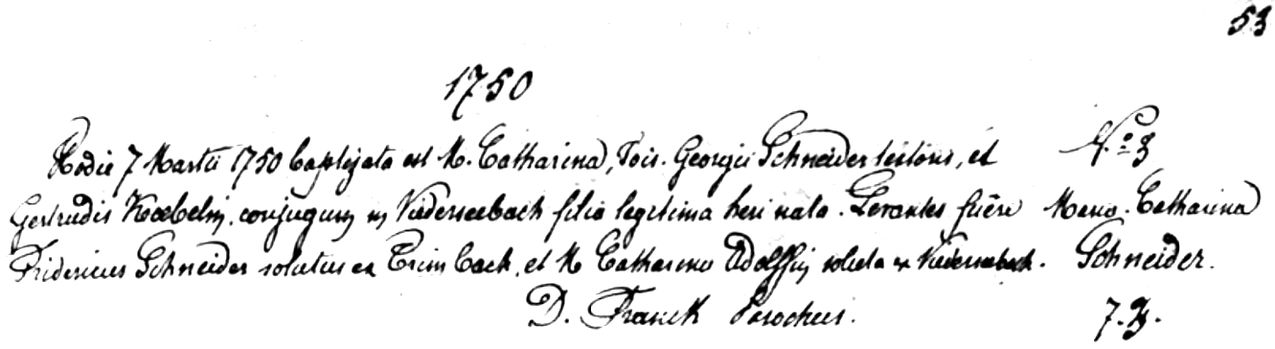 53
1750
Hodie 7 Martii 1750 baptizata est M. Catharina, Jois. Georgii Schneider textoris, et
Gertrudis Koebelin. conjugum in Niederseebach filia legitima heri nata. Levantes fuere
Fridericus Schneider solutus ex Trimbach, et M Catharina Adolffin soluta ex Niederseebach.
D. Franck Parochus.
N.o 3
Maria. Catharina
Schneider.
7. 3.